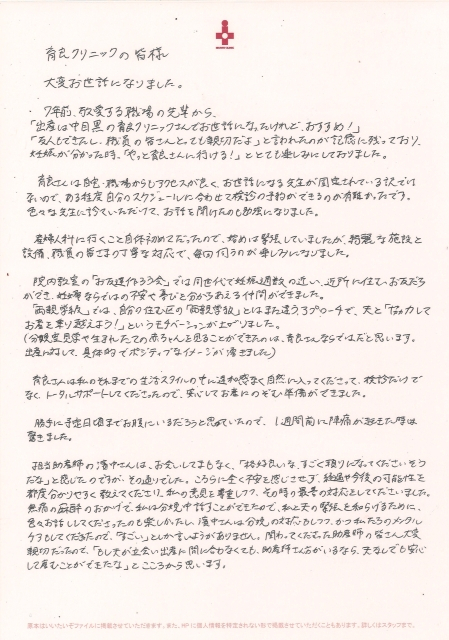 育良クリニックの皆様
大変お世話になりました。
7年前、敬愛する職場の先輩から、
「出産は中目黒の育良クリニックさんでお世話になったけれど、おすすめ！」
「友人もできたし、職員の皆さんとっても親切だよ」と言われたのが記憶に残っており、
妊娠が分かった時、「やっと育良さんに行ける！」ととても楽しみにしておりました。
育良さんは自宅・職場からもアクセスが良く、お世話になる先生が固定されている訳でも
ないので、ある程度自分のスケジュールに合わせて検診の予約ができるのが有難かったです。
色々な先生に診ていただけて、お話を聞けたのも勉強になりました。
産婦人科に行くこと自体初めてだったので、始めは緊張していましたが、綺麗な施設と
設備、職員の皆さまの丁寧な対応で、毎回伺うのが楽しみになりました。
院内教室の「お友達作ろう会」では同世代で妊娠週数の近い、近所に住むお友だち
ができ、妊婦ならではの不安や喜びを分かちあえる仲間ができました。
「両親学級」では、自分の住む区の「両親学級」とはまた違うアプローチで、夫と「協力して
お産を乗り越えよう！」というモチベーションが上がりました。
(分娩室見学や生まれたての赤ちゃんを見ることができたのは、育良さんならではだと思います。
出産に対して、具体的でポジティブなイメージが湧きました)
育良さんは私のそれまでの生活スタイルの中に違和感なく自然に入ってくださって、検診だけで
なく、トータルサポートしてくださったので、安心してお産にのぞむ準備ができました。
勝手に予定日頃までお腹にいるだろうと思っていたので、1週間前に陣痛が起きた時は
驚きました。
担当助産師の濱中さんは、お会いしてまもなく、「格好良いな、すごく頼りになってくださいそう
だな」と感じたのですが、その通りでした。こちらに全く不安を感じさせず、経過や今後の可能性を
都度分かりやすく教えてくださり、私の意見を尊重しつつ、その時の最善の対応をしてくださいました。
無痛の麻酔のおかげで、私は分娩中話すことができたので、私と夫の緊張を和らげるために、
色々お話ししてくださったのも楽しかったし、濱中さんは分娩の対応もしつつ、かつ私たちのメンタル
ケアもしてくださるので、「すごい」としか言いようがありません。関わってくださった助産師の皆さんが大変
親切だったので、「もし夫が立会い出産に間に合わなくても、助産師さん方がいるなら、夫なしでも安心
して産むことができたな」とこころから思います。
原本はいいたいぞファイルに掲載させていただきます。また、HPに個人情報を特定されない形で掲載させていただくこともあります。詳しくはスタッフまで。